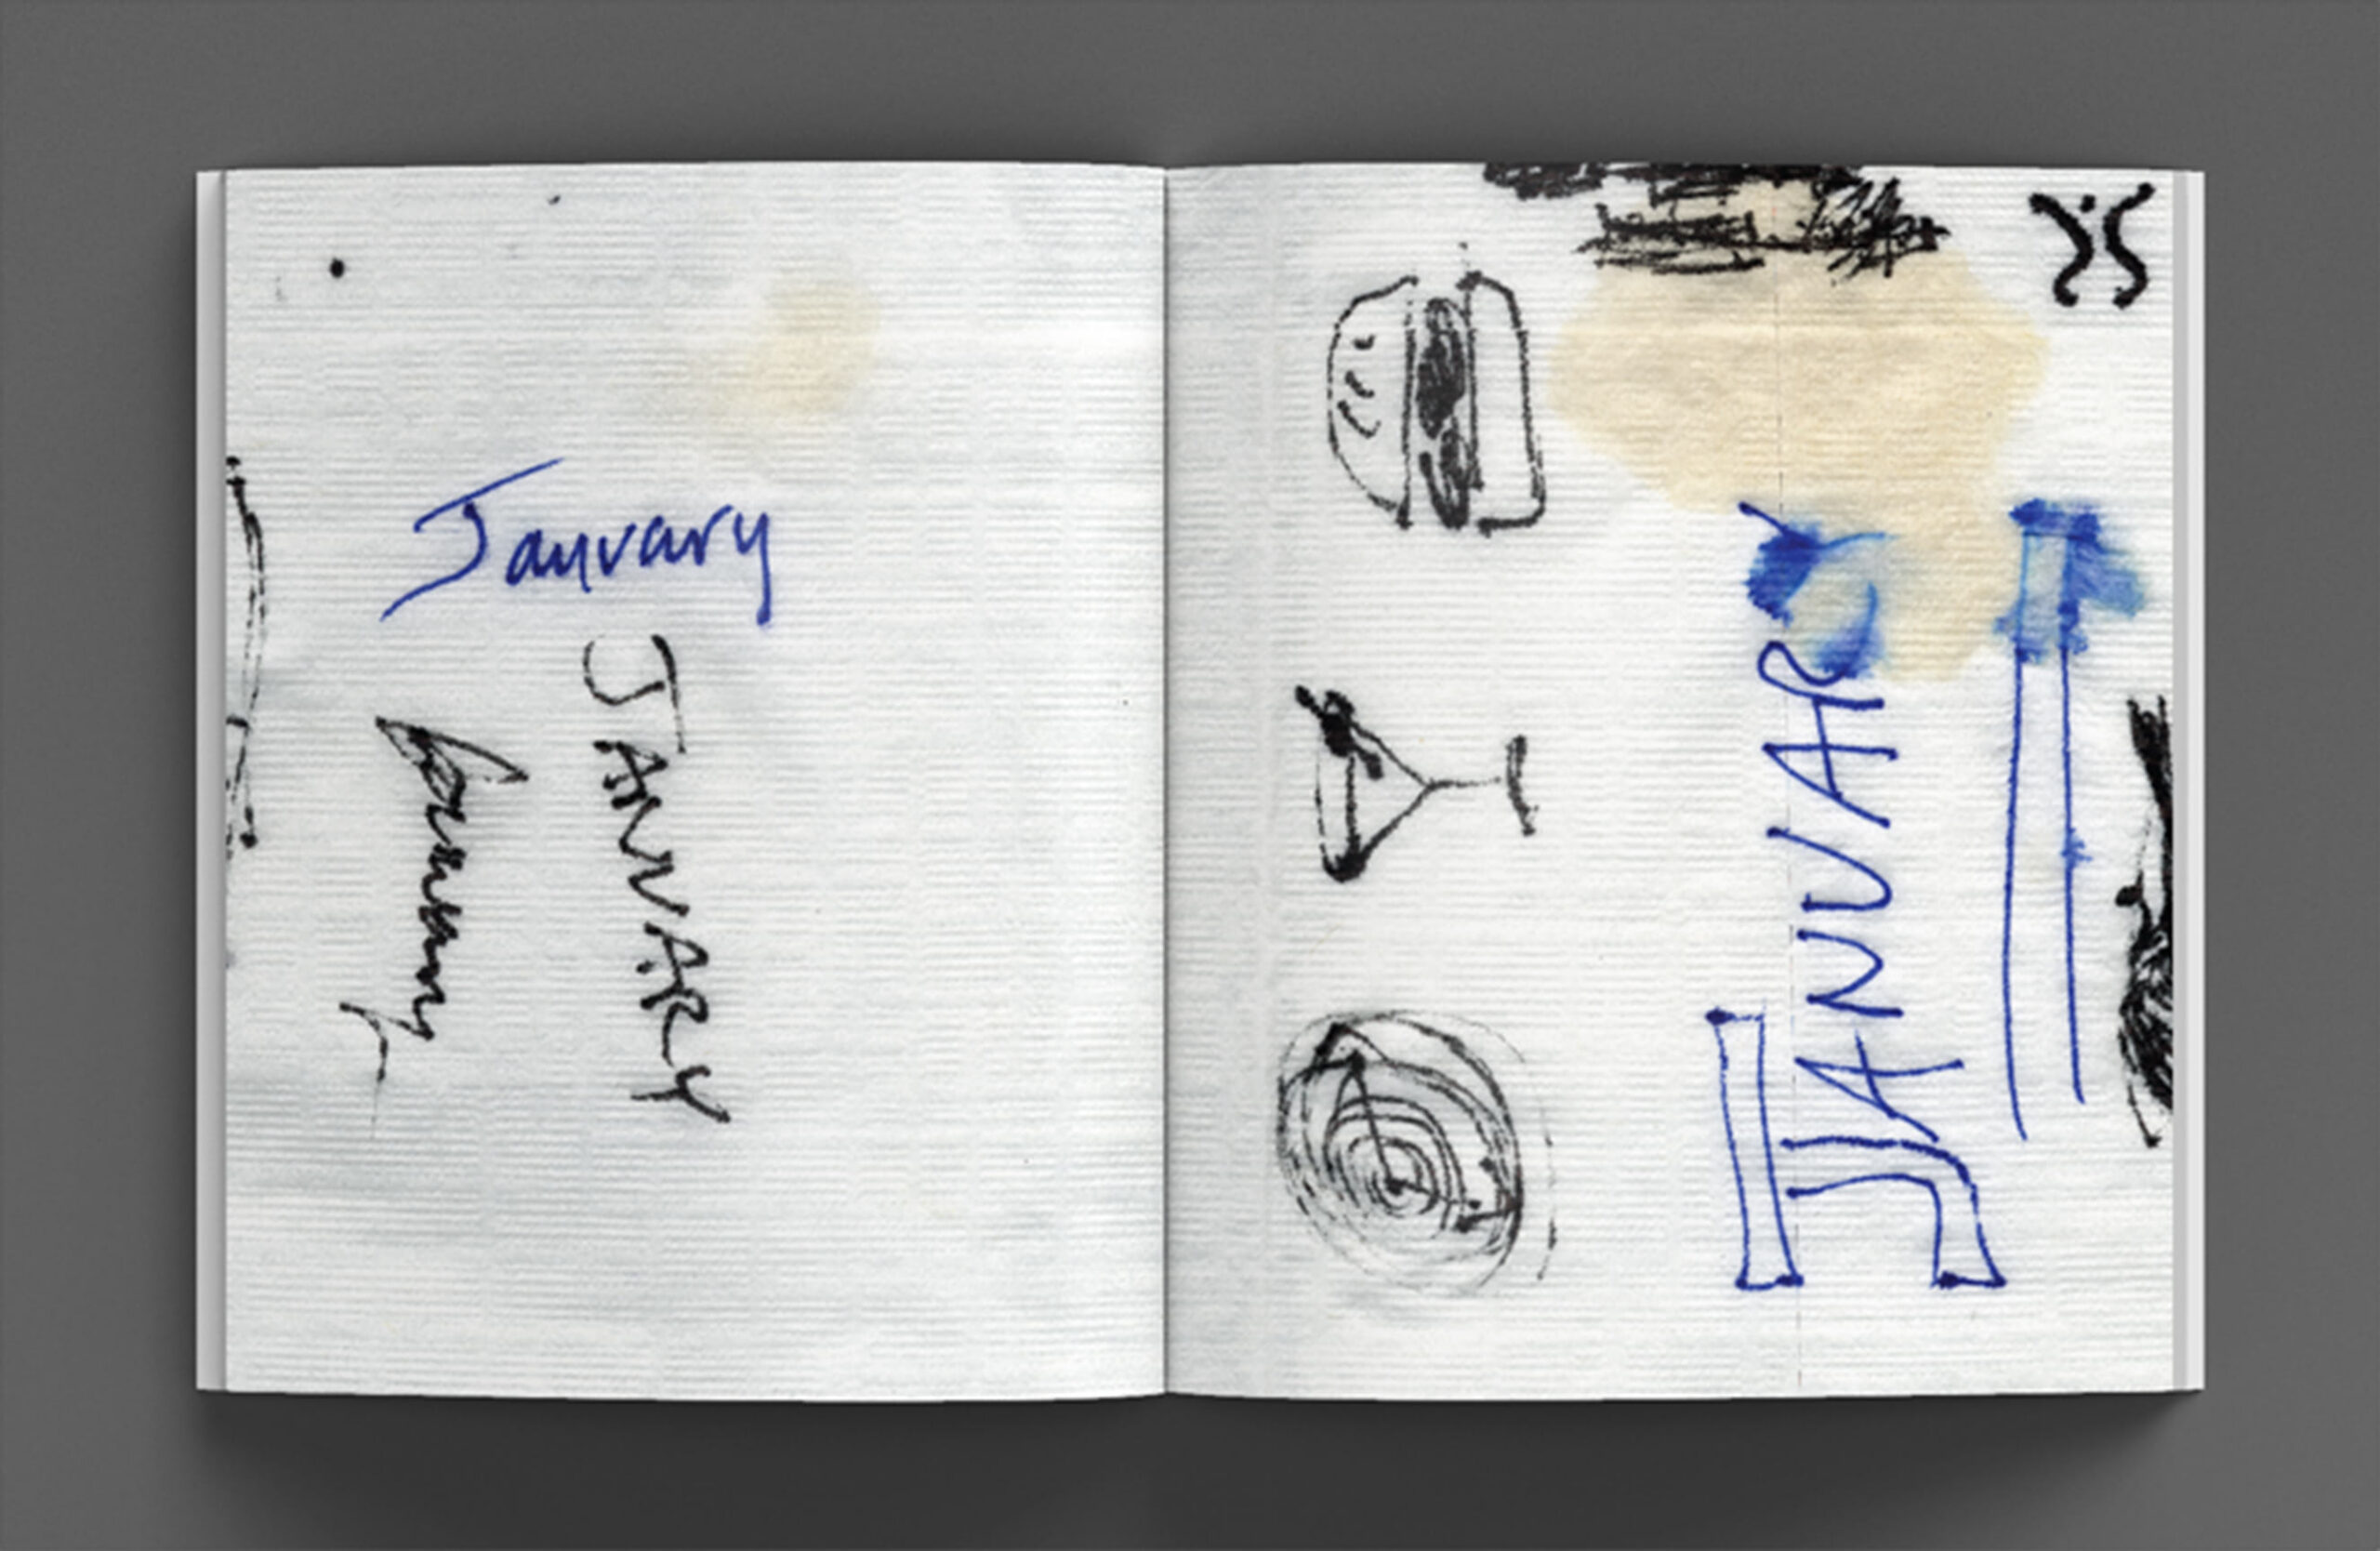 January
JANUARY
January
JANUARY